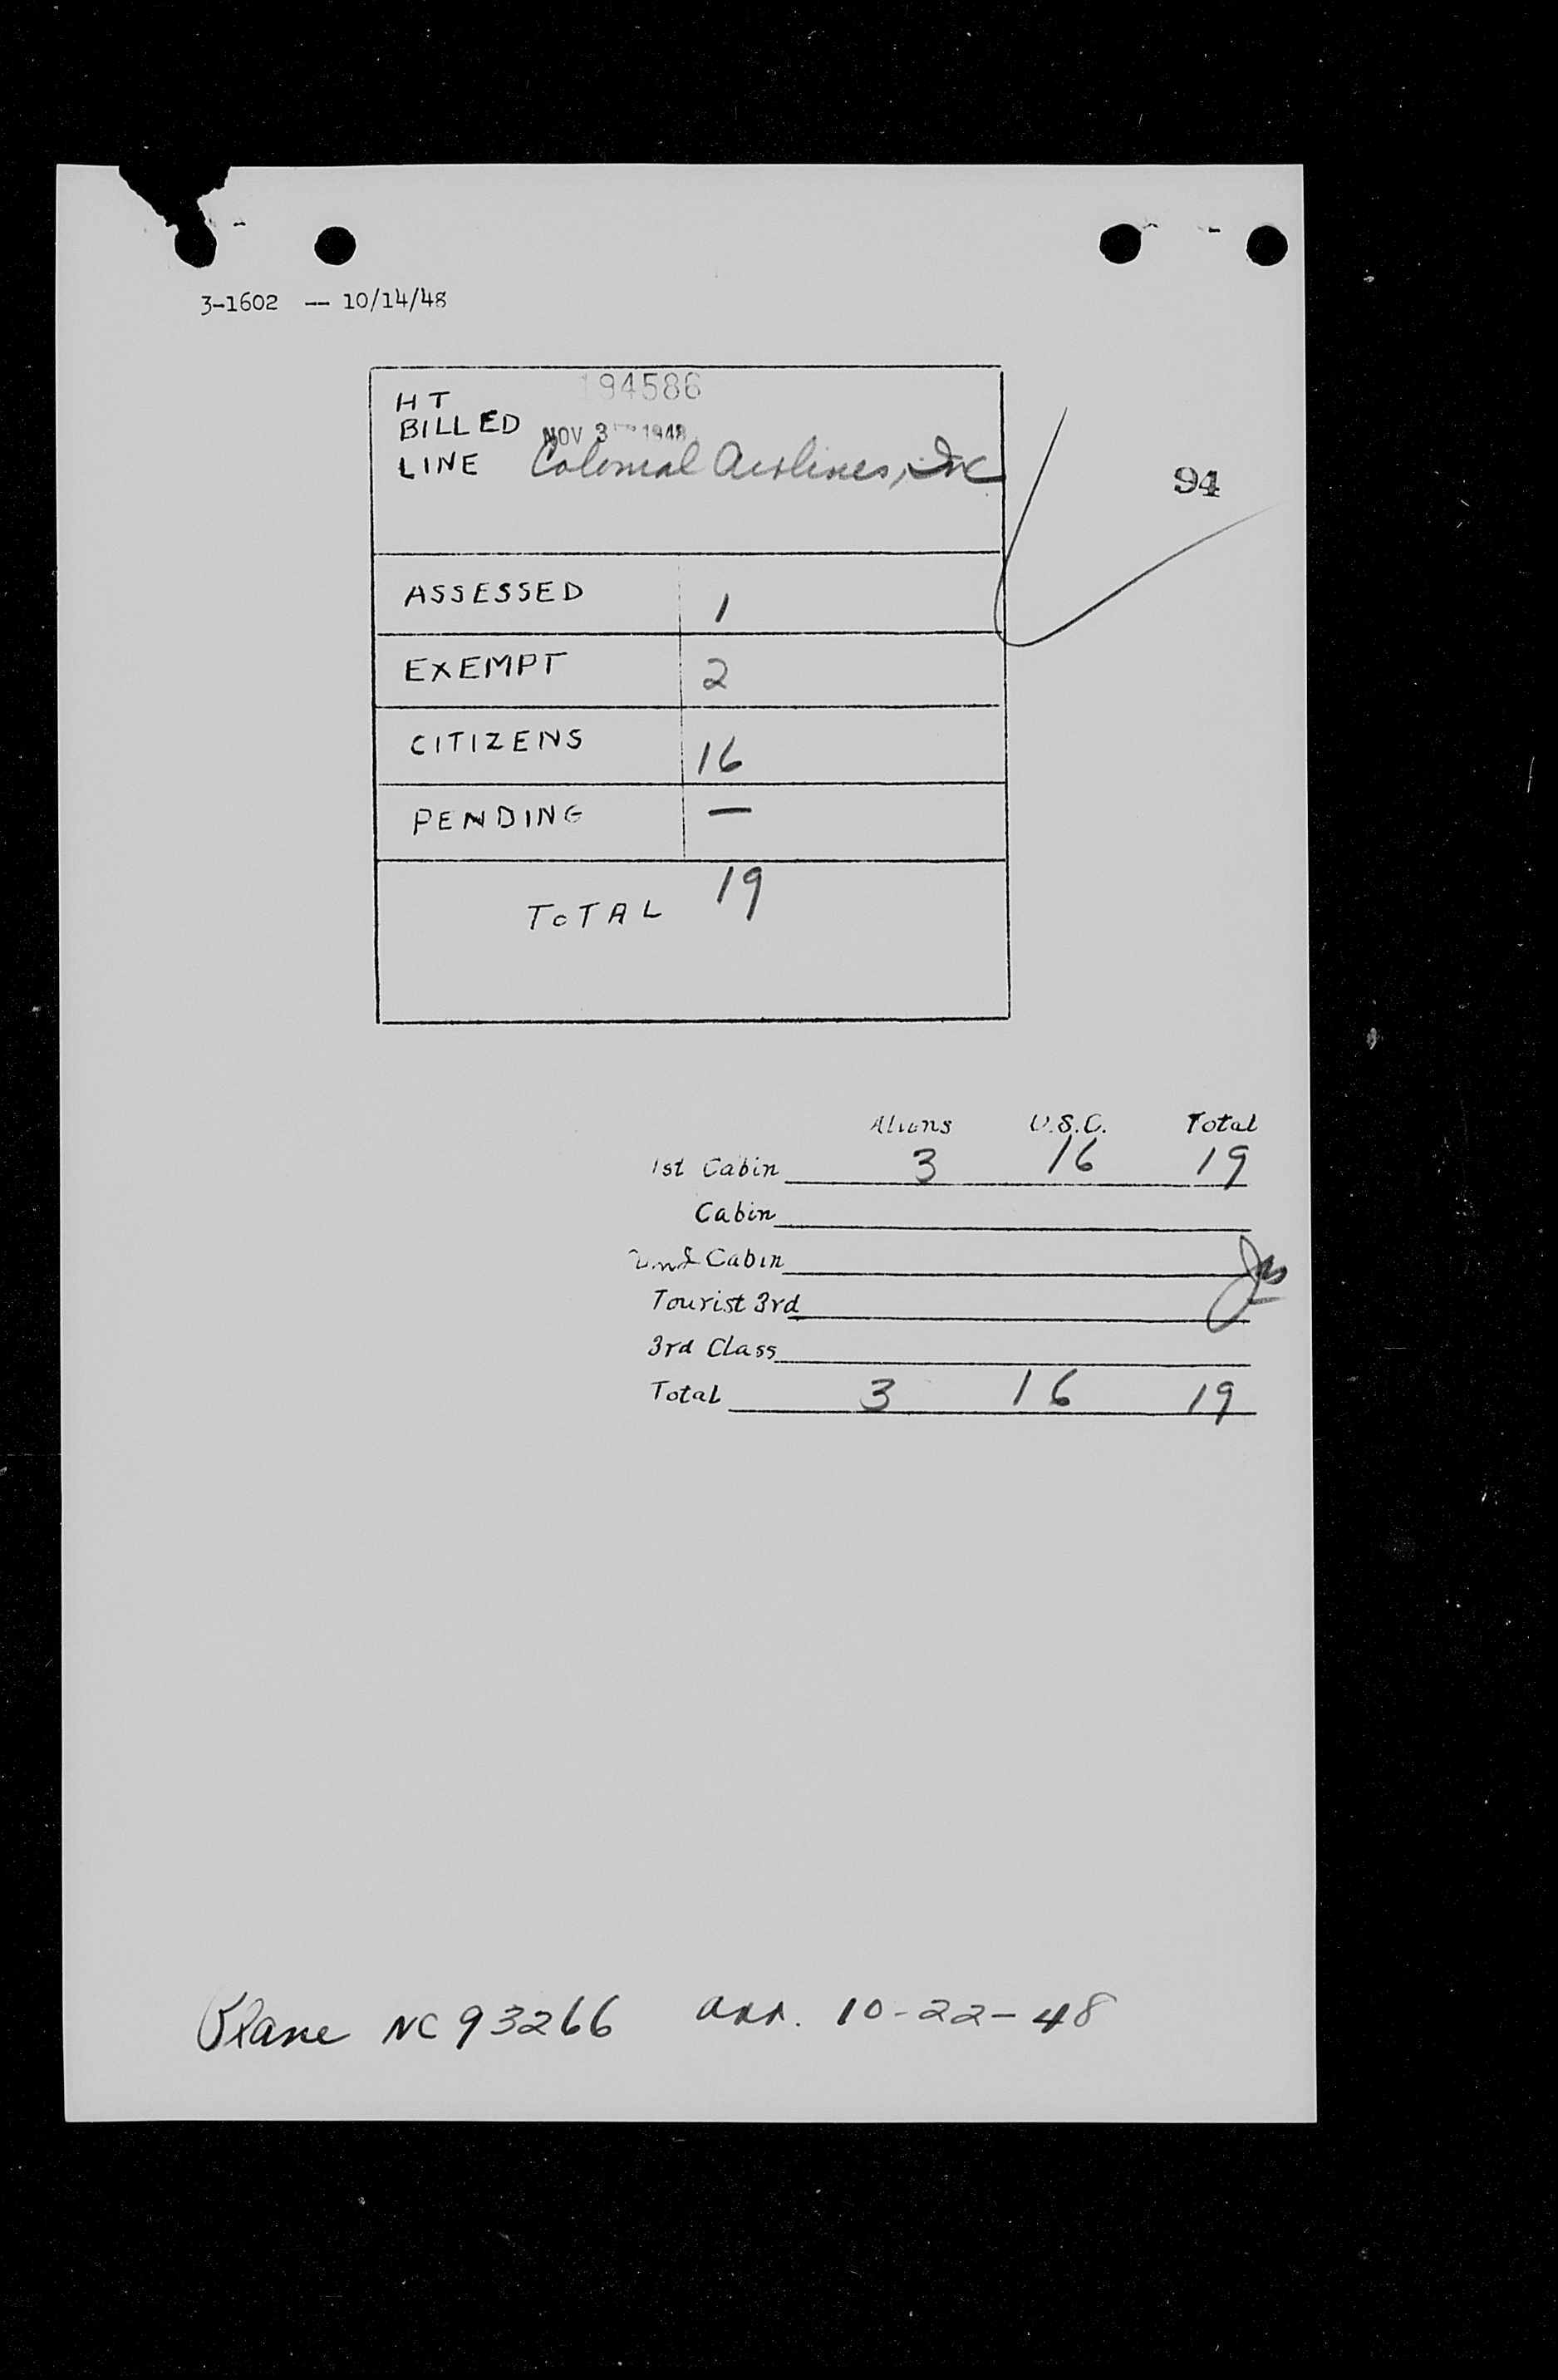 3-1602 -- 10/14/48
HT 194586
BILLED NOV 3 1948
LINE Colonial Airlines, Inc
94
ASSESSED 1
EXEMPT 2
CITIZENS 16
PENDING —
TOTAL 19
Aliens U.S.C. Total
1st Cabin 3 16 19
Cabin
2nd Cabin
Tourist 3rd
3rd Class
Total 3 16 19
Plane NC 93266 arr. 10-22-48